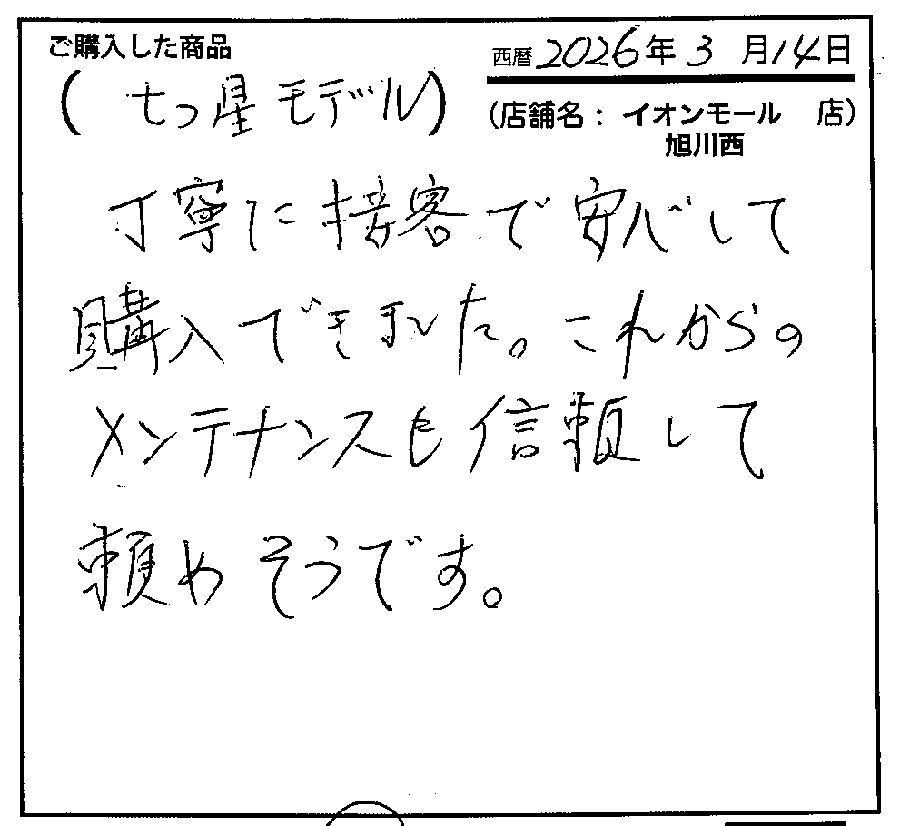 ご購入した商品
西暦 2026年 3月14日
(七つ星モデル)
(店舗名：イオンモール 店)
旭川西
丁寧に接客で安心して
購入できました。これからの
メンテナンスも信頼して
頼めそうです。